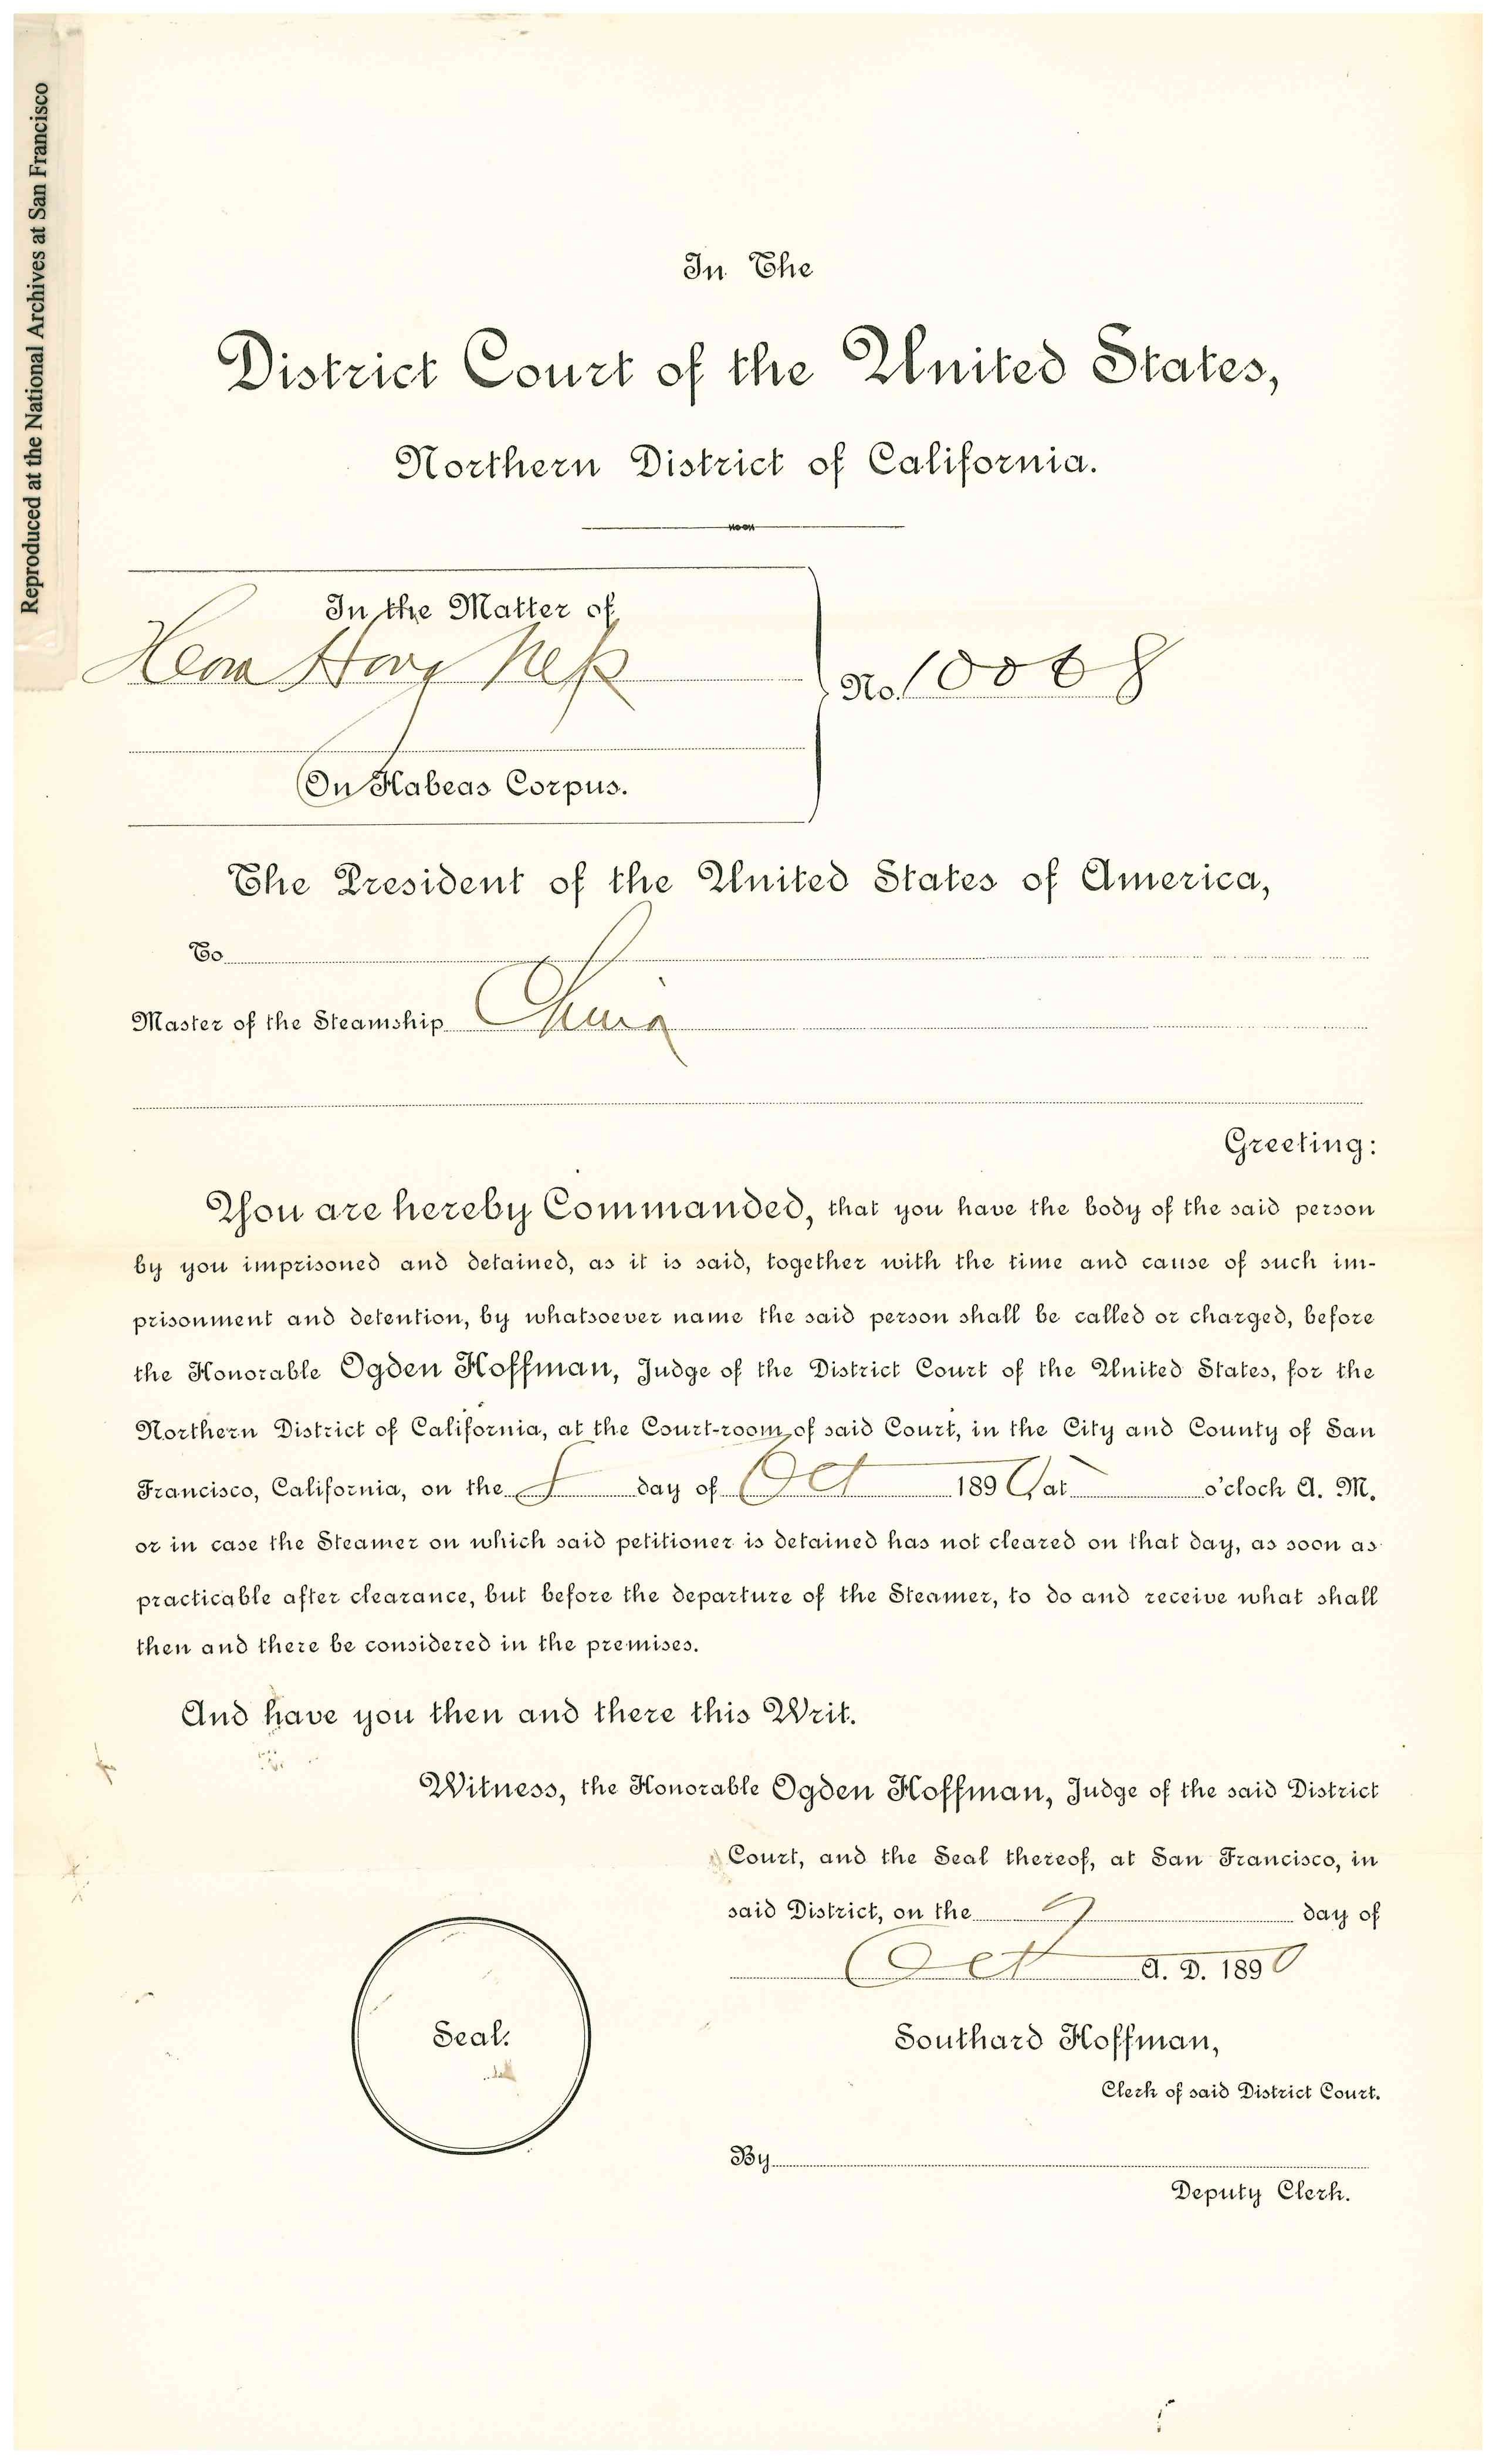 Reproduced at the National Archives at San Francisco
In The
District Court of the United States,
Northern District of California.
In the Matter of
Hong
No. 10068
On Habeas Corpus.
The President of the United States of America,
To
Master of the Steamship China
Greeting:
You are hereby Commanded, that you have the body of the said person
by you imprisoned and detained, as it is said, together with the time and cause of such im-
prisonment and detention, by whatsoever name the said person shall be called or charged, before
the Honorable Ogden Hoffman, Judge of the District Court of the United States, for the
Northern District of California, at the Court-room of said Court, in the City and County of San
Francisco, California, on the day of Oct 1890 at o'clock A. M.
or in case the Steamer on which said petitioner is detained has not cleared on that day, as soon as
practicable after clearance, but before the departure of the Steamer, to do and receive what shall
then and there be considered in the premises.
And have you then and there this Writ.
Witness, the Honorable Ogden Hoffman, Judge of the said District
Court, and the Seal thereof, at San Francisco, in
said District, on the 7 day of
Oct A. D. 1890
Seal.
Southard Hoffman,
Clerk of said District Court.
By
Deputy Clerk.